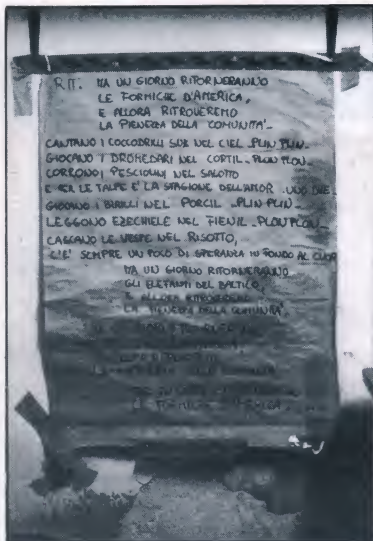 RIT. MA UN GIORNO RITORNERANNO
LE FORMICHE D'AMERICA,
E ALLORA RITROVEREMO
LA PIENEZZA DELLA COMUNITA'-
CANTANO I COCCODRILLI SUL NEL CIEL -PLIN PLIN-
GIOCANO I DROMEDARI NEL CORTIL- PLON PLON-
CORRONO I PESCIOLINI NEL SALOTTO
E PER LE TALPE E' LA STAGIONE DELL'AMOR
GIOCANO I NEL PORCIL -PLIN PLIN-
LEGGONO EZECHIELE NEL FIENIL -PLON PLON-
CASCANO LE VESPE NEL RISOTTO,
C'E' SEMPRE UN POCO DI SPERANZA IN FONDO AL CUOR
MA UN GIORNO RITORNERANNO
GLI ELEFANTI DEL BALTICO,
E ALLORA RITROVEREMO
LA PIENEZZA DELLA COMUNITA'.
LE FORMICHE